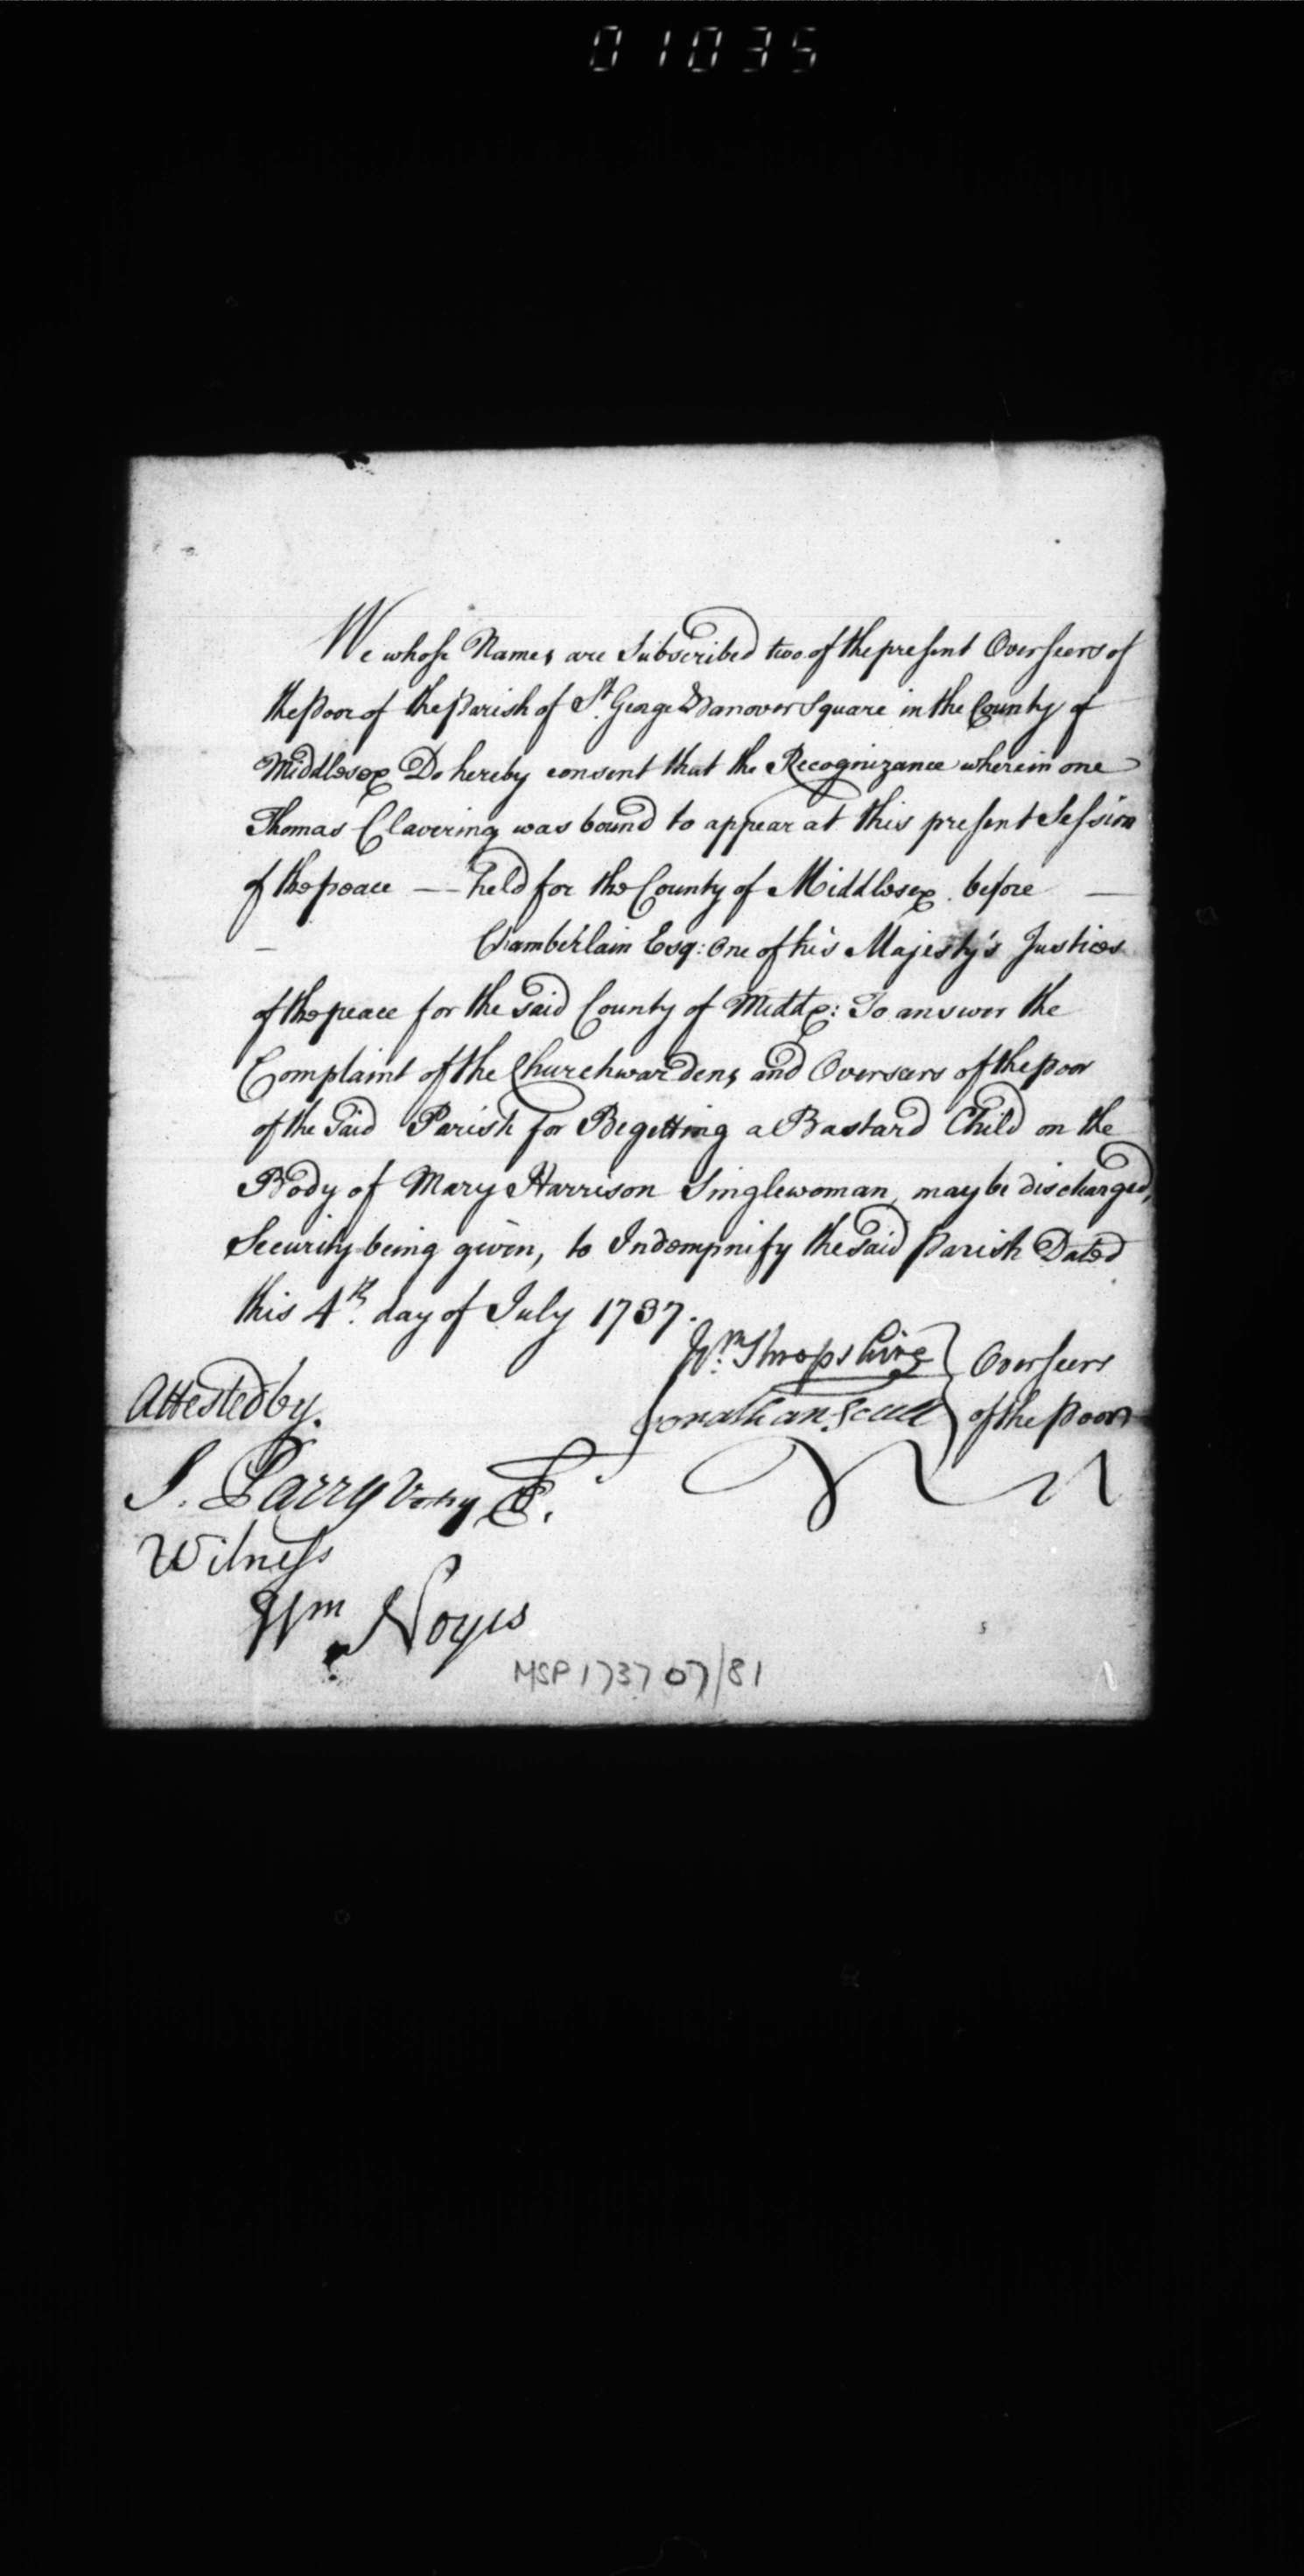 01035
We whose Names are Subscribed two of the present Overseers of
the Poor of the Parish of St. George Hanover Square in the County of
Middlesex Do hereby consent that the Recognizance wherein one
Thomas Clavering was bound to appear at this present Session
of the peace — held for the County of Middlesex before —
— Chamberlain Esq: One of his Majesty's Justices
of the peace for the said County of Middx: To answer the
Complaint of the Churchwardens and Overseers of the poor
of the Said Parish for Begetting a Bastard Child on the
Body of Mary Harrison Singlewoman, may be discharged,
Security being given, to Indempnify the said Parish Dated
this 4th. day of July 1737.
Wm. Shropshire } Overseers
Jonathan Scull } of the Poor
Attested by.
J. Parry Vestry
Witness
Wm Noyes
MSP 1737 07/81